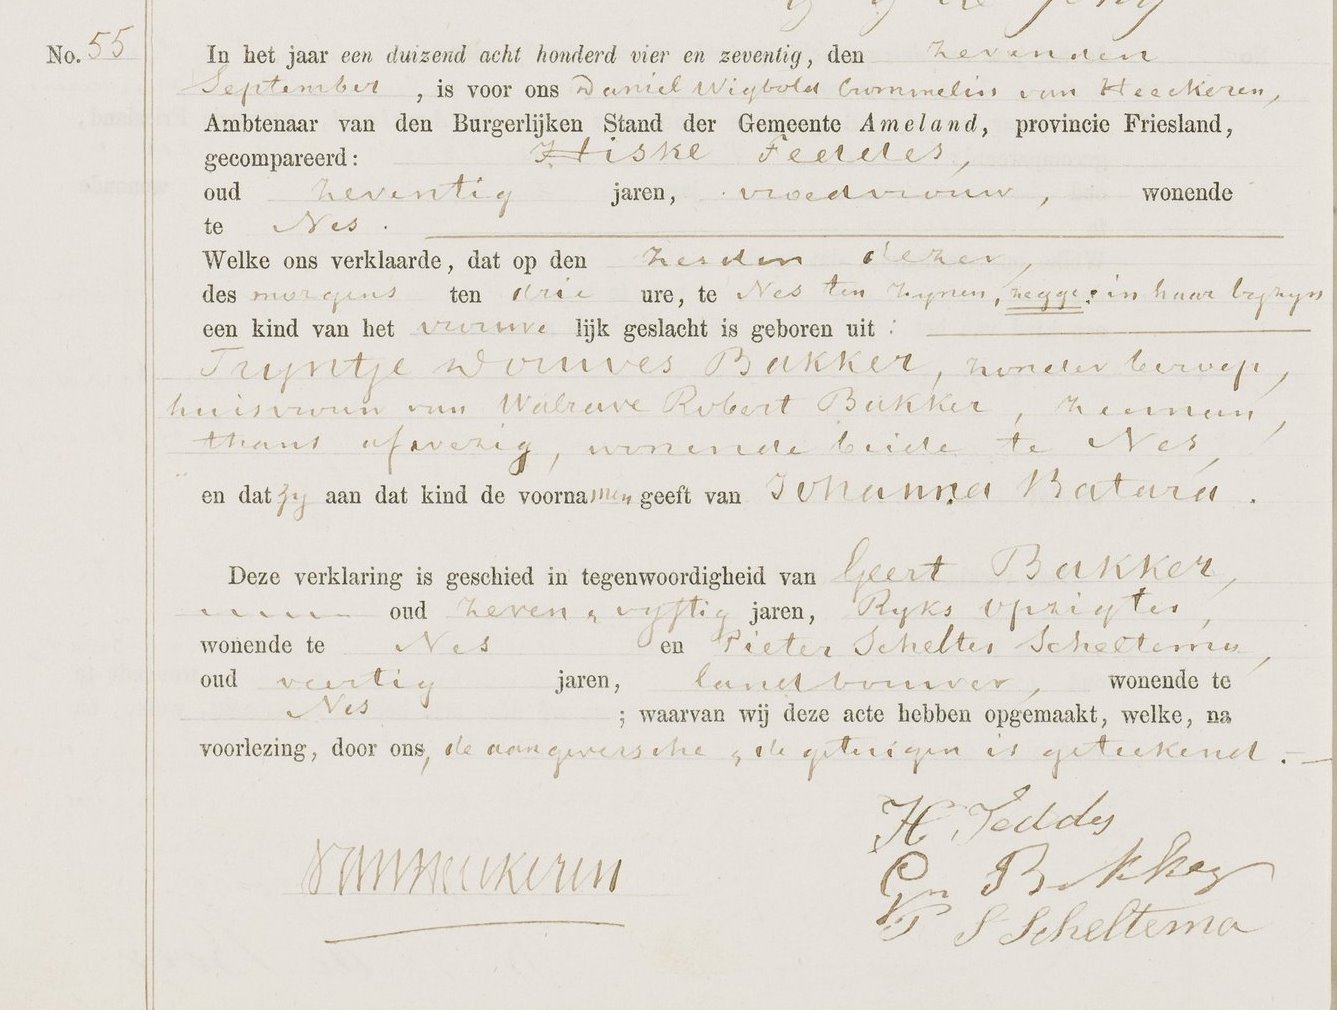 No. 55
In het jaar een duizend acht honderd vier en zeventig, den zevenden
September, is voor ons Daniel Wigbold Crommelin van Heeckeren,
Ambtenaar van den Burgerlijken Stand der Gemeente Ameland, provincie Friesland,
gecompareerd: Hiske Feddes,
oud zeventig jaren, vroedvrouw, wonende
te Nes.
Welke ons verklaarde, dat op den zesden dezer,
des morgens ten drie ure, te Nes ten zynen, zegge: in haar byzyn
een kind van het vrouwelijk geslacht is geboren uit :
Tryntje Douwes Bakker, zonder beroep,
huisvrouw van Walrave Robert Bakker, zeeman,
thans afwezig, wonende beide te Nes,
en dat zy aan dat kind de voornamen geeft van Johanna Batara.
Deze verklaring is geschied in tegenwoordigheid van Geert Bakker,
oud zeven & vyftig jaren, Ryks opzigter,
wonende te Nes en Pieter Scheltes Scheltema,
oud veertig jaren, landbouwer, wonende te
Nes ; waarvan wij deze acte hebben opgemaakt, welke, na
voorlezing, door ons, de aangeversche & de getuigen is geteekend.
H Feddes
VanHeeckeren
Bakker
P S Scheltema